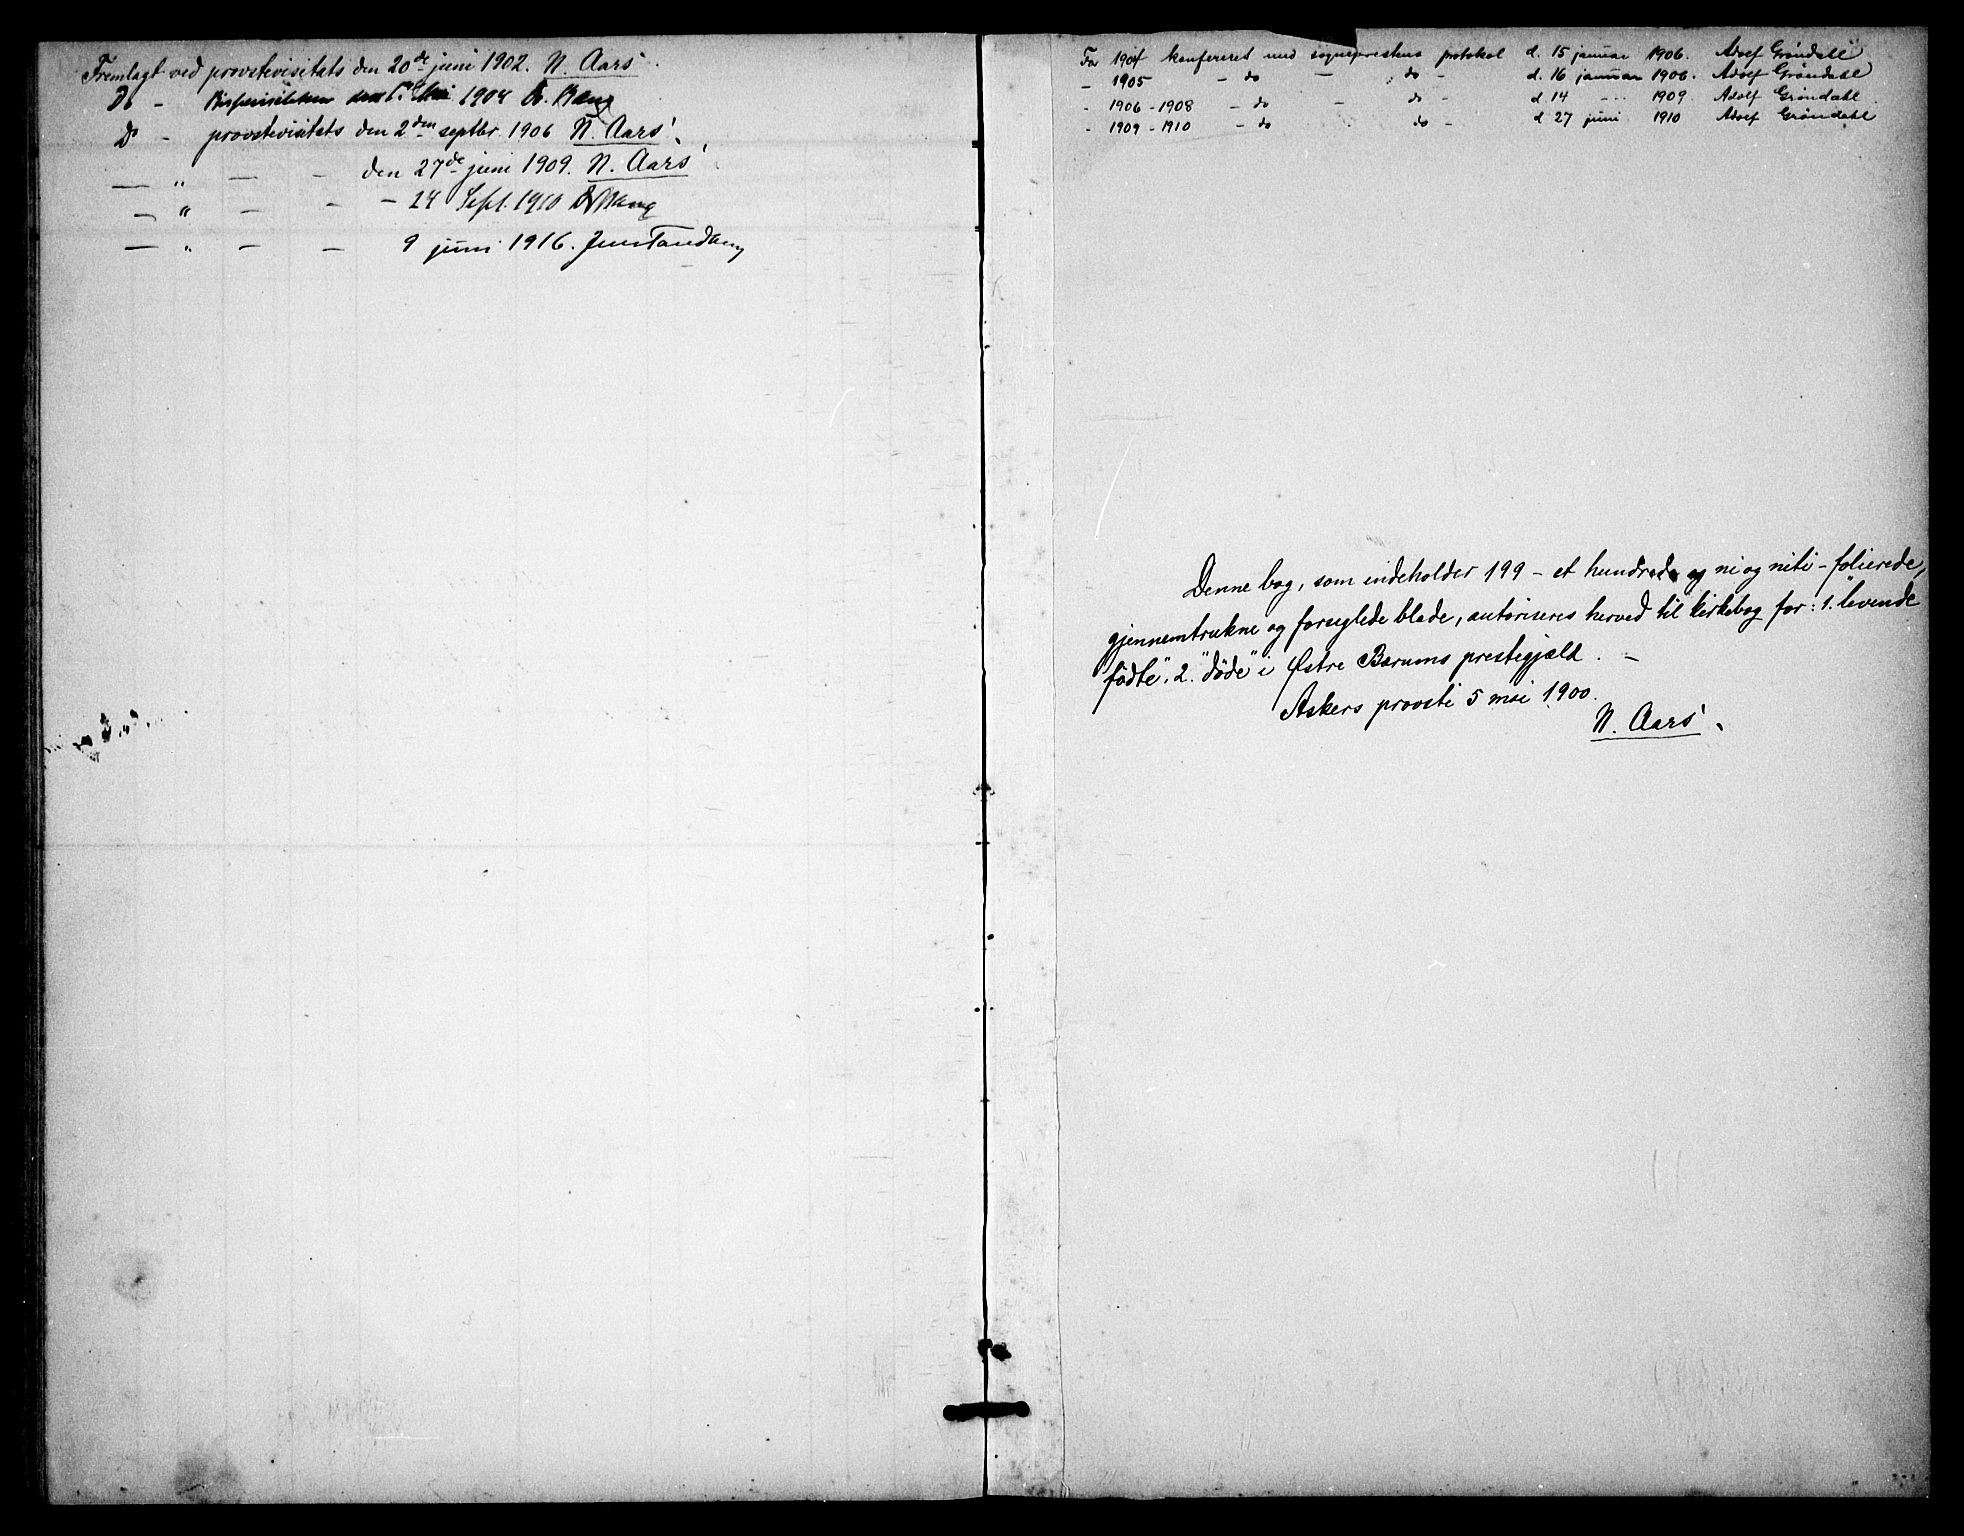 Fremlagt ved provstevisitats den 20de juni 1902. N. Aars.
Do - Bispevisitatsen 1904 A. Bang
Do - provstevisitats den 2den septbr. 1906 N. Aars.
— " — - den 27de juni 1909. N. Aars
— " — - - 24 Sept. 1910 Bang
— " — — 9 juni 1916. Jens Tandberg
For 1904 konfereret med sogneprestens protokol d. 15 januar 1906. Adolf Grøndahl
- 1905 - do — do - d. 16 januar 1906. Adolf Grøndahl
- 1906 - 1908 - do - do - d 14 - 1909 Adolf Grøndahl
- 1909 - 1910 - do - do - d 27 juni 1910 Adolf Grøndahl
Denne bog, som indeholder 199 - et hundrede og ni og niti - folierede,
gjennemtrukne og forseglede blade, autoriseres herved til kirkebog for: 1. "levende
födte", 2. "döde" i Østre Bærums prestegjæld. —
Askers provsti 5 mai 1900.
N. Aars.